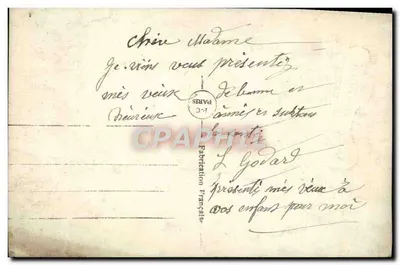 Chère Madame
Je viens vous présenter
mes veux de bonne et
heureux années surtout
la santé
L Godard
présenté mes veux à
vos enfant pour moi
PARIS
Fabrication Française
CPARAMA